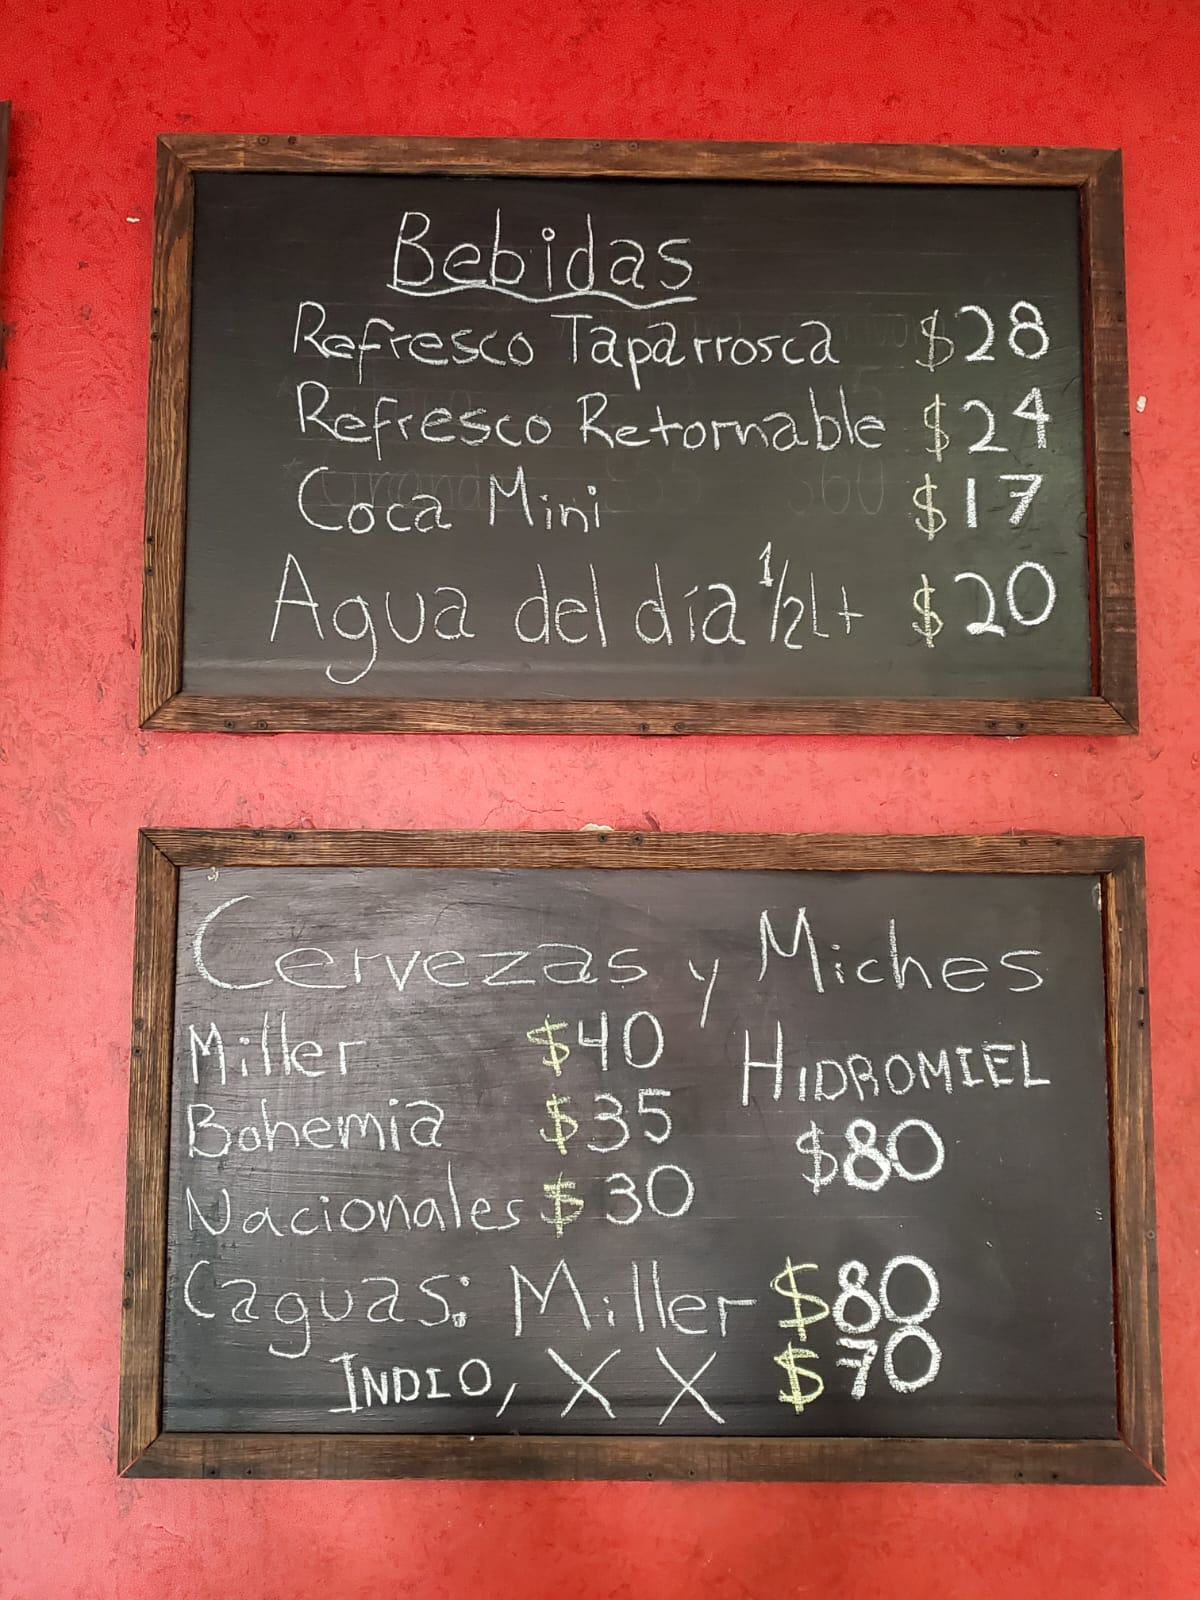 Bebidas
Refresco Taparrosca $28
Refresco Retornable $24
Coca Mini $17
Agua del día 1/2Lt $20
Cervezas y Miches
Miller $40
Bohemia $35
Nacionales $30
HIDROMIEL
$80
Caguas: Miller $80
INDIO, XX $70